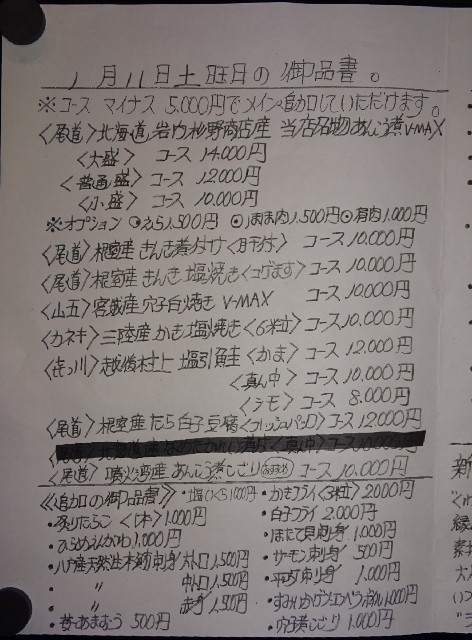 1月11日土旺日の御品書。
※コース マイナス 5.000円でメイン追加していただけます。
〈尾道〉北海道岩内杉野商店産 当店名物あんこう煮V-MAX
〈大盛〉 コース 14.000円
〈普通盛〉 コース 12.000円
〈小盛〉 コース 10.000円
※オプション ⊙えら1.500円 ⊙ほほ肉1.500円 ⊙肩肉1.000円
〈尾道〉根室産きんき煮付け〈肝付〉 コース 10.000円
〈尾道〉根室産きんき塩焼き〈コゲます〉 コース 10.000円
〈山五〉宮城産穴子白焼き V-MAX コース 10.000円
〈カネキ〉三陸産かき塩焼き〈6粒〉 コース 10.000円
〈㐂っ川〉越後村上 塩引鮭〈かま〉 コース 12.000円
〈真ん中〉 コース 10.000円
〈うモ〉 コース 8.000円
〈尾道〉根室産たら白子豆腐 コース 12.000円
〈尾道〉噴火湾産あんこう煮こごり コース 10.000円
《追加の御品書》・塩いくら1.000円
・炙りたらこ〈1本〉1.000円
・ひらめえんがわ1.000円
・八戸産天然生本鮪刺身 大トロ 1.500円
・ 〃 中トロ 1.500円
・ 〃 赤身 1.500円
・甘あまむう 500円
・かきフライ〈3粒〉2000円
・白子フライ 2.000円
・ほたて貝刺身 1.000円
・サーモン刺身 500円
・平町刺身 1.000円
・すみいかゲソエンペラ 1.000円
・穴子煮こごり 1.000円
新